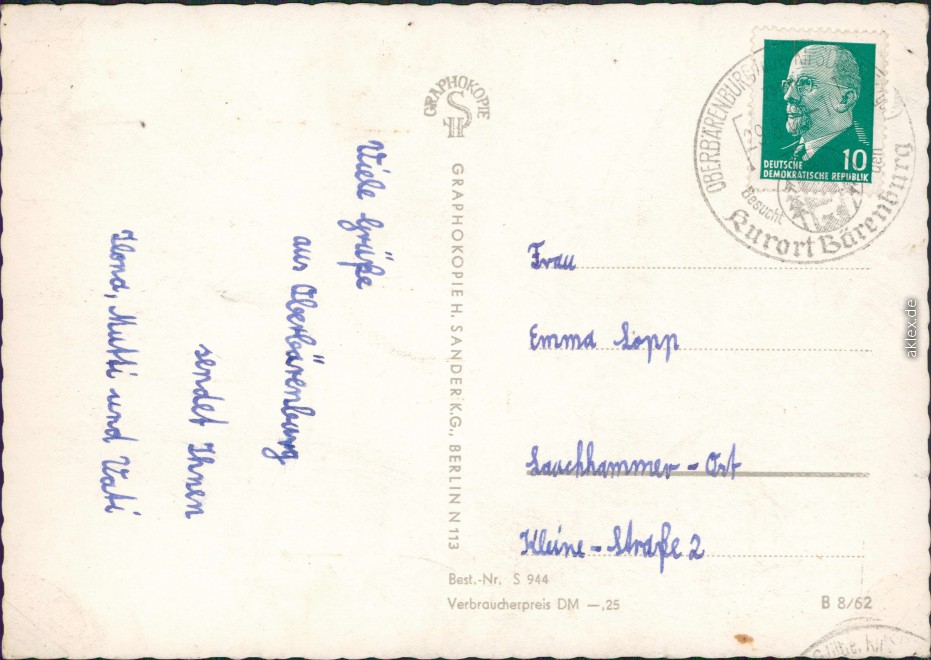 Viele Grüße
aus Oberbärenburg
sendet Ihnen
Ilona, Mutti und Vati
GRAPHOKOPIE
GRAPHOKOPIE H. SANDER K.G., BERLIN N 113
Best.-Nr. S 944
Verbraucherpreis DM —,25
B 8/62
DEUTSCHE
DEMOKRATISCHE REPUBLIK
10
OBERBÄRENBURG
Besucht
Kurort Bärenburg
Frau
Emma Lopp
Lauchhammer - Ort
Kleine - Straße 2
aklex.de